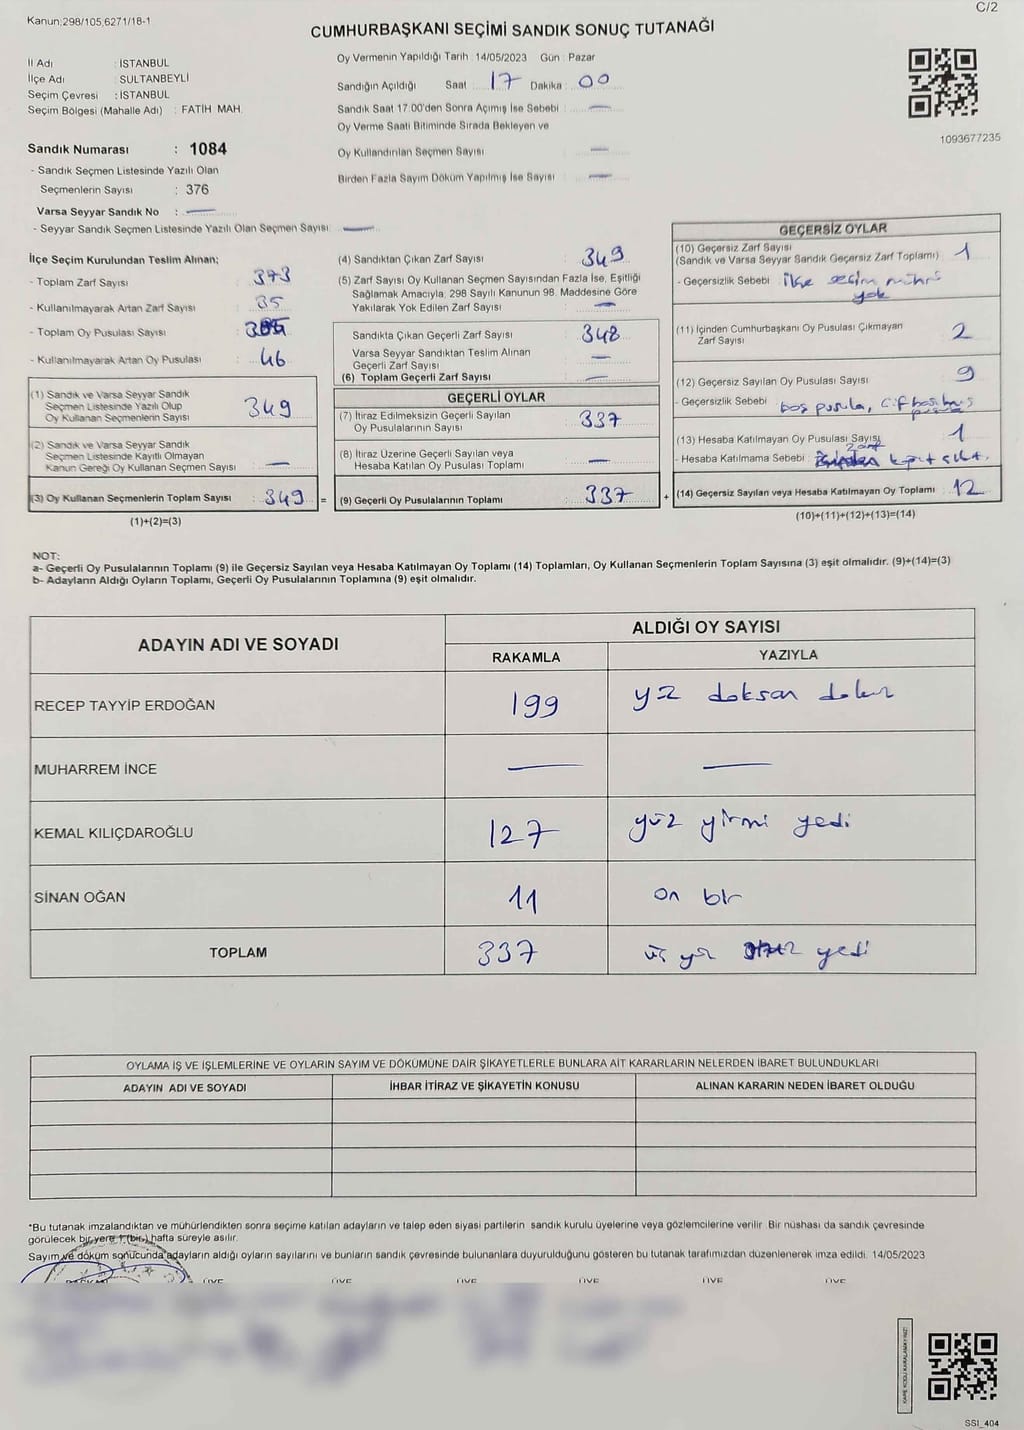 Kanun;298/105,6271/18-1
C/2
CUMHURBAŞKANI SEÇİMİ SANDIK SONUÇ TUTANAĞI
İl Adı : İSTANBUL
İlçe Adı : SULTANBEYLİ
Seçim Çevresi : İSTANBUL
Seçim Bölgesi (Mahalle Adı) : FATİH MAH.
Sandık Numarası : 1084
- Sandık Seçmen Listesinde Yazılı Olan
Seçmenlerin Sayısı : 376
Varsa Seyyar Sandık No : —
- Seyyar Sandık Seçmen Listesinde Yazılı Olan Seçmen Sayısı : —
Oy Vermenin Yapıldığı Tarih : 14/05/2023 Gün : Pazar
Sandığın Açıldığı Saat : 17 Dakika : 00
Sandık Saat 17.00'den Sonra Açımış İse Sebebi : —
Oy Verme Saati Bitiminde Sırada Bekleyen ve
Oy Kullandırılan Seçmen Sayısı : —
Birden Fazla Sayım Döküm Yapılmış İse Sayısı : —
1093677235
İlçe Seçim Kurulundan Teslim Alınan;
- Toplam Zarf Sayısı : 373
- Kullanılmayarak Artan Zarf Sayısı : 35
- Toplam Oy Pusulası Sayısı :
- Kullanılmayarak Artan Oy Pusulası : 46
(1) Sandık ve Varsa Seyyar Sandık
Seçmen Listesinde Yazılı Olup
Oy Kullanan Seçmenlerin Sayısı : 349
(2) Sandık ve Varsa Seyyar Sandık
Seçmen Listesinde Kayıtlı Olmayan
Kanun Gereği Oy Kullanan Seçmen Sayısı : —
(3) Oy Kullanan Seçmenlerin Toplam Sayısı : 349 =
(1)+(2)=(3)
(4) Sandıktan Çıkan Zarf Sayısı : 349
(5) Zarf Sayısı Oy Kullanan Seçmen Sayısından Fazla İse, Eşitliği
Sağlamak Amacıyla, 298 Sayılı Kanunun 98. Maddesine Göre
Yakılarak Yok Edilen Zarf Sayısı : —
Sandıkta Çıkan Geçerli Zarf Sayısı : 348
Varsa Seyyar Sandıktan Teslim Alınan
Geçerli Zarf Sayısı : —
(6) Toplam Geçerli Zarf Sayısı : —
GEÇERLİ OYLAR
(7) İtiraz Edilmeksizin Geçerli Sayılan
Oy Pusulalarının Sayısı : 337
(8) İtiraz Üzerine Geçerli Sayılan veya
Hesaba Katılan Oy Pusulası Toplamı : —
(9) Geçerli Oy Pusulalarının Toplamı : 337 +
GEÇERSİZ OYLAR
(10) Geçersiz Zarf Sayısı
(Sandık ve Varsa Seyyar Sandık Geçersiz Zarf Toplamı) : 1
- Geçersizlik Sebebi : ilçe seçim mührü
yok
(11) İçinden Cumhurbaşkanı Oy Pusulası Çıkmayan
Zarf Sayısı : 2
(12) Geçersiz Sayılan Oy Pusulası Sayısı : 9
- Geçersizlik Sebebi : boş pusula,
(13) Hesaba Katılmayan Oy Pusulası Sayısı : 1
- Hesaba Katılmama Sebebi :
(14) Geçersiz Sayılan veya Hesaba Katılmayan Oy Toplamı : 12
(10)+(11)+(12)+(13)=(14)
NOT:
a- Geçerli Oy Pusulalarının Toplamı (9) ile Geçersiz Sayılan veya Hesaba Katılmayan Oy Toplamı (14) Toplamları, Oy Kullanan Seçmenlerin Toplam Sayısına (3) eşit olmalıdır. (9)+(14)=(3)
b- Adayların Aldığı Oyların Toplamı, Geçerli Oy Pusulalarının Toplamına (9) eşit olmalıdır.
ADAYIN ADI VE SOYADI
ALDIĞI OY SAYISI
RAKAMLA YAZIYLA
RECEP TAYYİP ERDOĞAN 199 yüz doksan dokuz
MUHARREM İNCE — —
KEMAL KILIÇDAROĞLU 127 yüz yirmi yedi
SİNAN OĞAN 11 on bir
TOPLAM 337 üç yüz yedi
OYLAMA İŞ VE İŞLEMLERİNE VE OYLARIN SAYIM VE DÖKÜMÜNE DAİR ŞİKAYETLERLE BUNLARA AİT KARARLARIN NELERDEN İBARET BULUNDUKLARI
ADAYIN ADI VE SOYADI İHBAR İTİRAZ VE ŞİKAYETİN KONUSU ALINAN KARARIN NEDEN İBARET OLDUĞU
*Bu tutanak imzalandıktan ve mühürlendikten sonra seçime katılan adayların ve talep eden siyasi partilerin sandık kurulu üyelerine veya gözlemcilerine verilir. Bir nüshası da sandık çevresinde
görülecek bir yere 1 (bir) hafta süreyle asılır.
Sayım ve döküm sonucunda adayların aldığı oyların sayılarını ve bunların sandık çevresinde bulunanlara duyurulduğunu gösteren bu tutanak tarafımızdan düzenlenerek imza edildi. 14/05/2023
ÜYE ÜYE ÜYE ÜYE ÜYE ÜYE
SSI_404